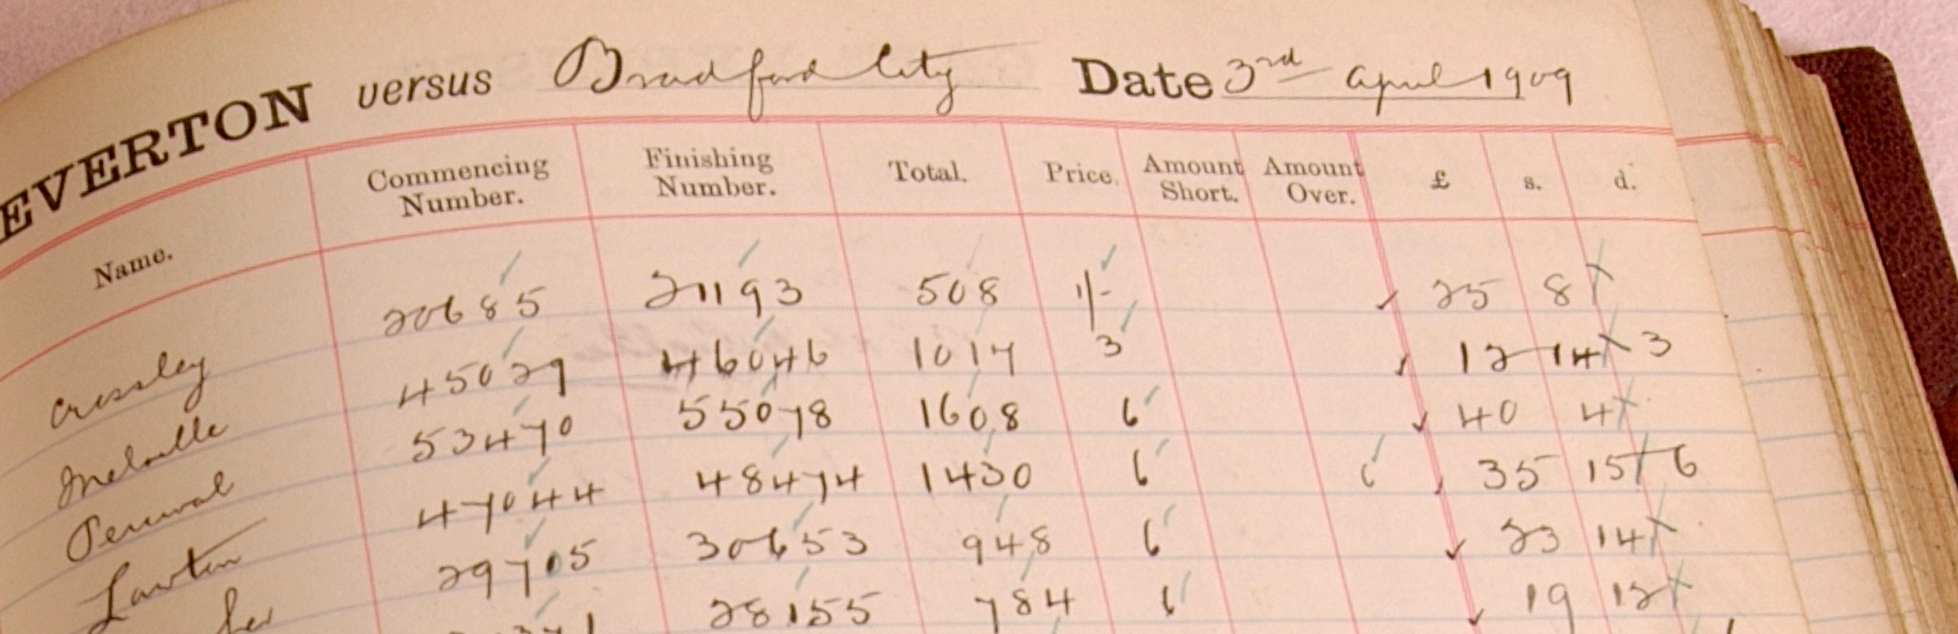 EVERTON versus Bradford City Date 3rd April 1909
Name. Commencing Number. Finishing Number. Total. Price. Amount Short. Amount Over. £ s. d.
Crossley 20685 21193 508 1/- 25 8
Melville 45029 46046 1017 3 12 14 3
Percival 53470 55078 1608 6 40 4
Lawton 47044 48474 1430 6 6 35 15 6
29705 30653 948 6 23 14
28155 784 6 19 12